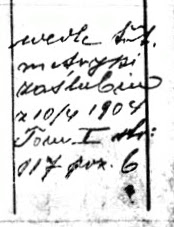 wedle św.
metryki
zaślubin
z 10/4 1904
Tom I str:
017 poz. 6